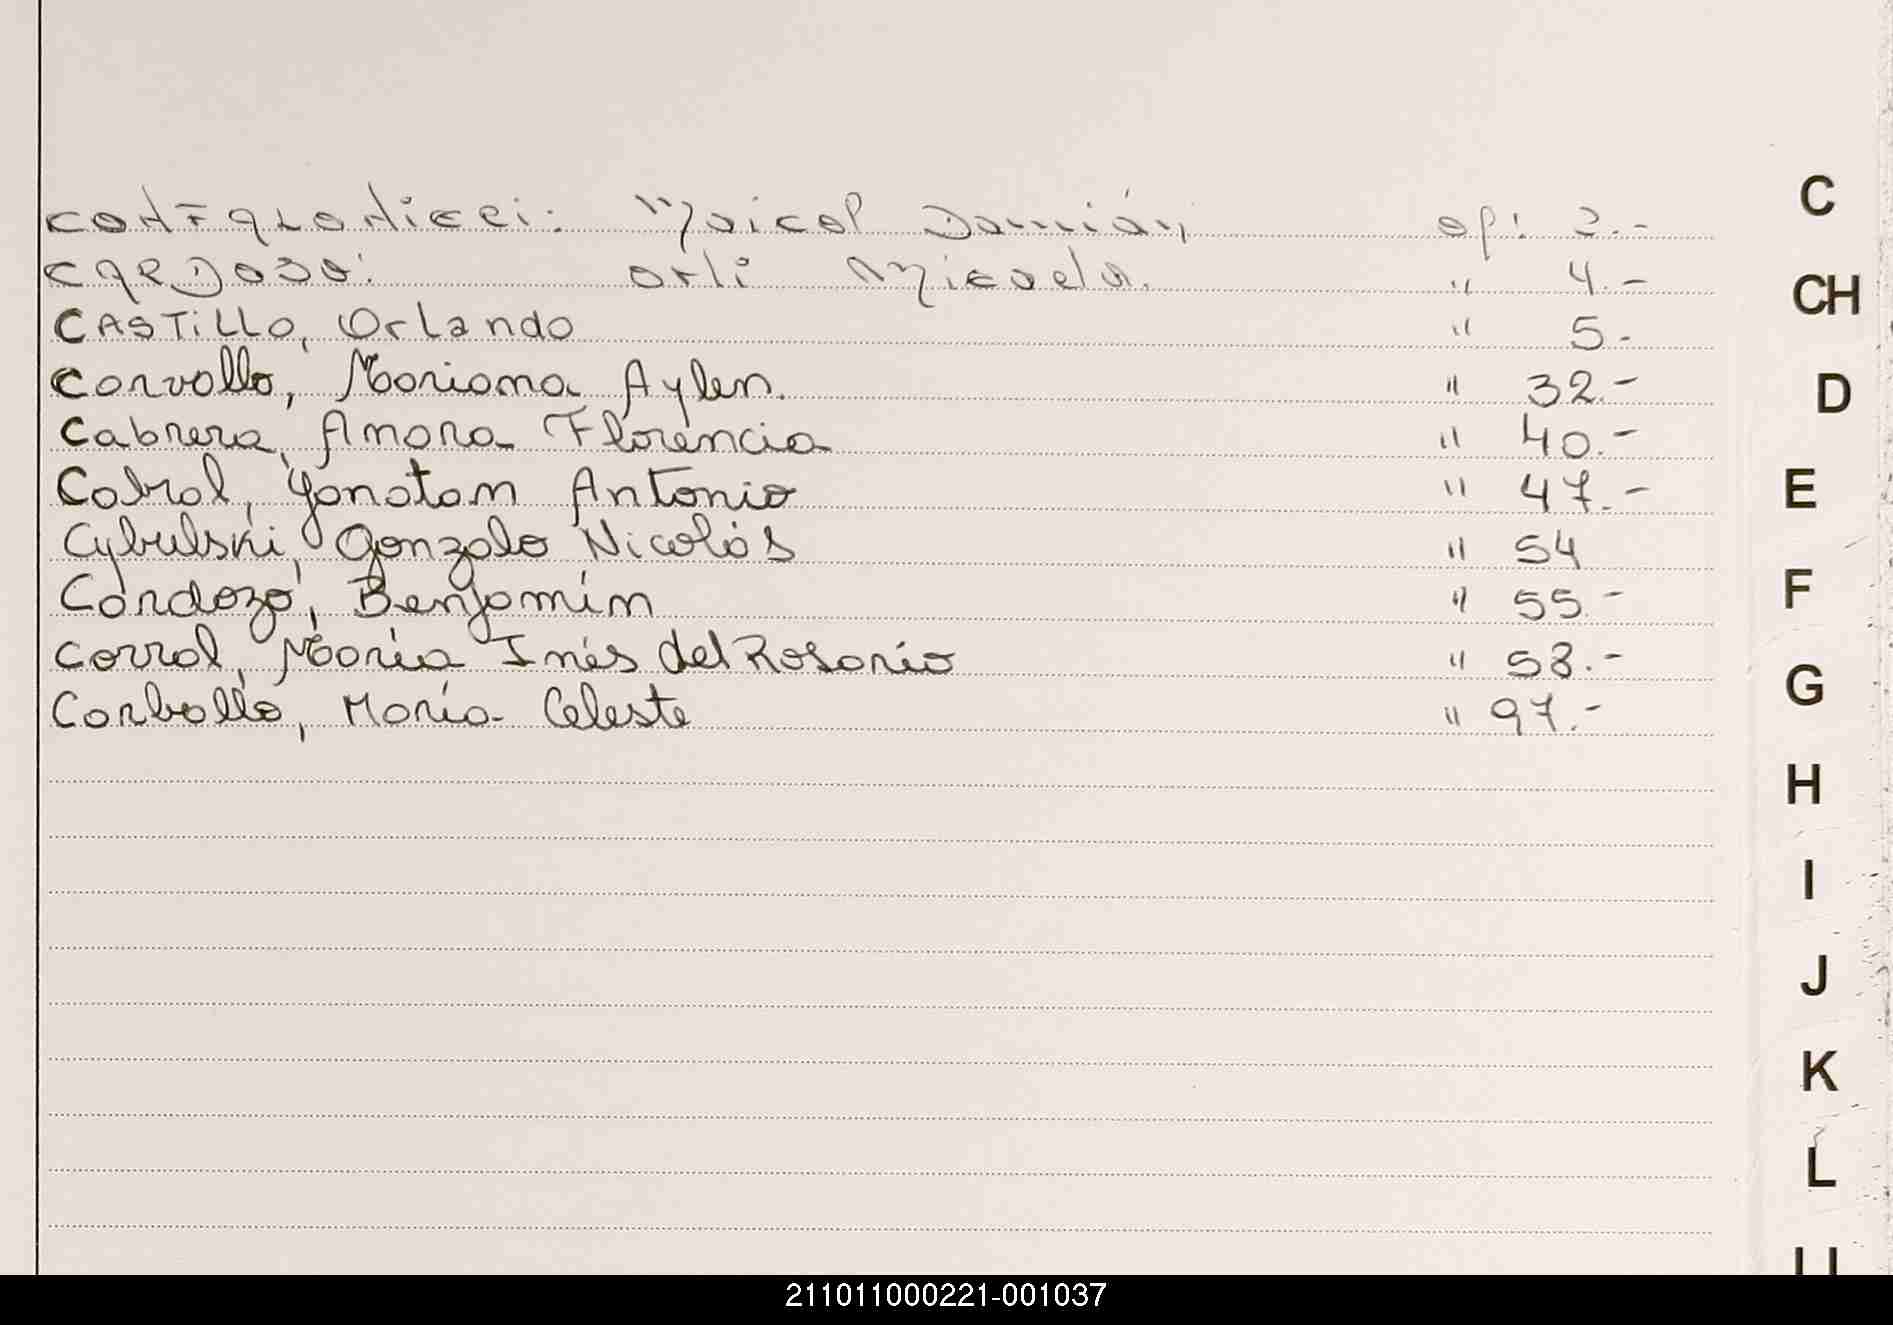 Maicol Damián op: 2.-
CARDOSO: Orli Micaela. " 4.-
CASTILLO, Orlando " 5.-
Carvallo, Mariana Aylen. " 32.-
Cabrera, Amara Florencia " 40.-
Cabral, Yonatan Antonio " 47.-
Cybulski, Gonzalo Nicolás " 54
Cardozo, Benjamín " 55.-
Corral, María Inés del Rosario " 58.-
Carballo, María Celeste " 97.-
C
CH
D
E
F
G
H
I
J
K
L
211011000221-001037